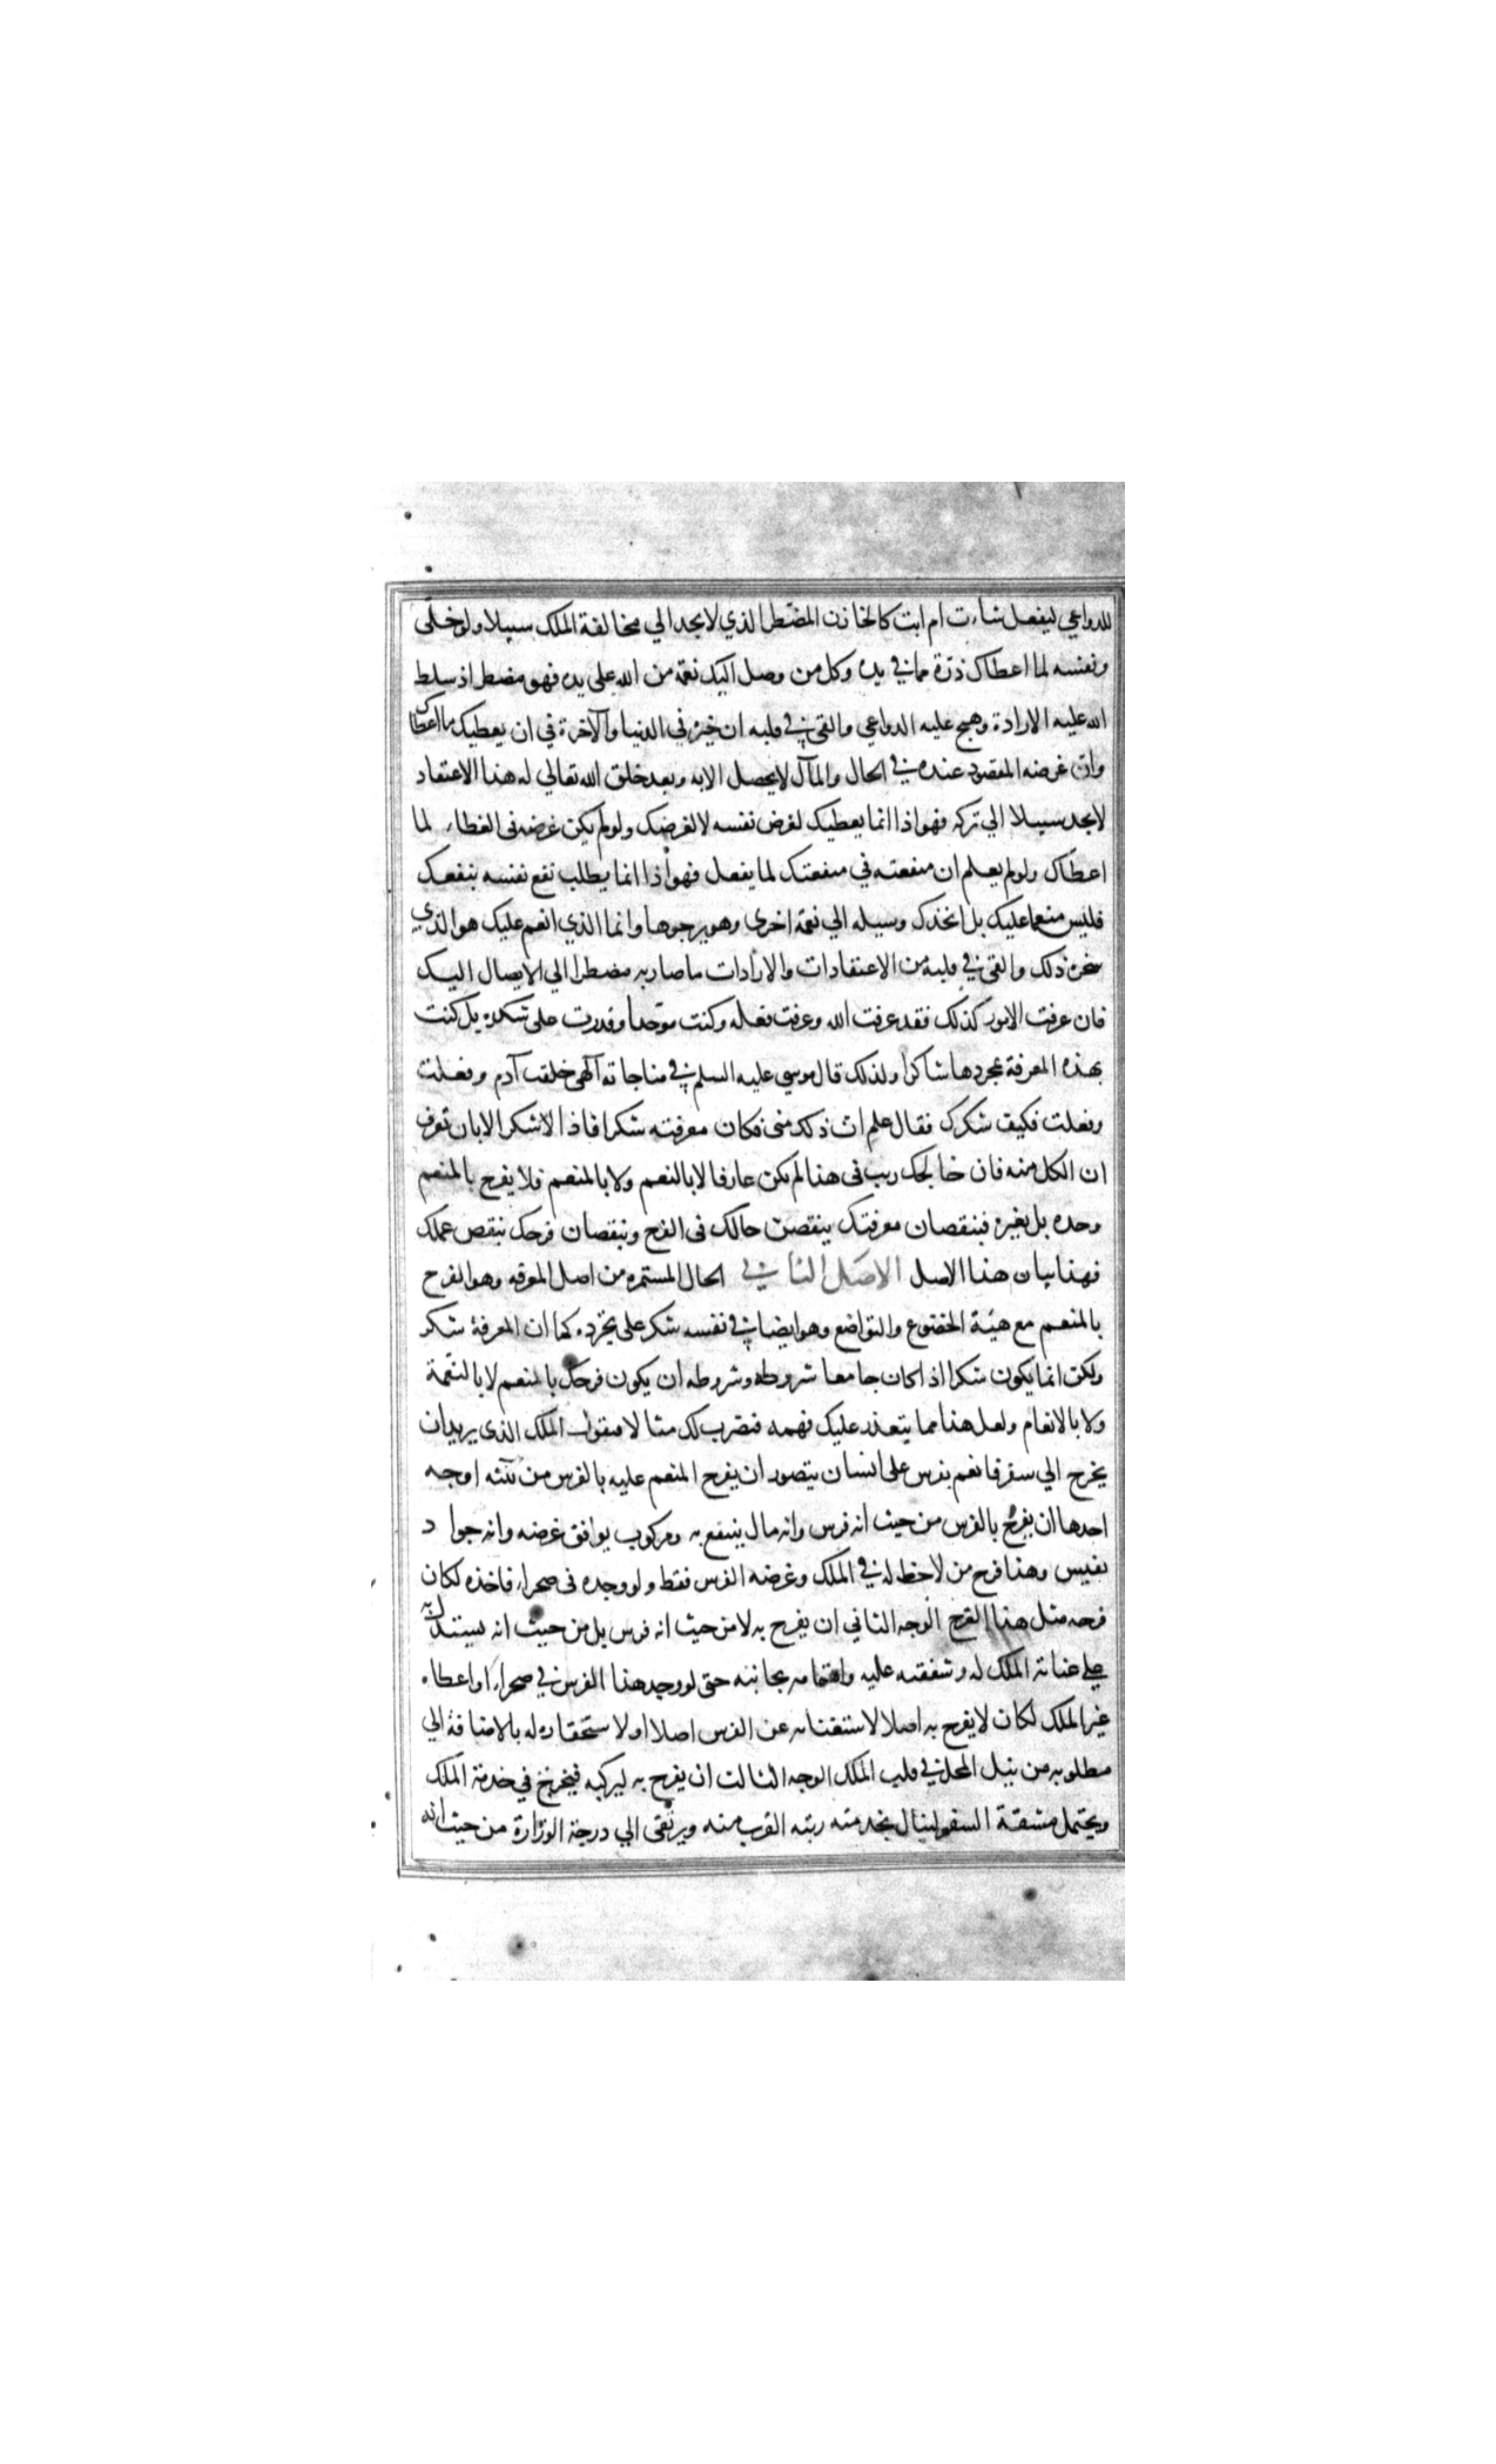 للدواعي ليفعل شاءت ام ابت كالخازن المضطر الذي لا يجد الي مخالفة الملك سبيلا ولو خلّى
ونفسه لما اعطاك ذرّة مما في يده وكل من وصل اليك نعمة من الله على يده فهو مضطر اذ سلط
الله عليه الارادة وهيج عليه الدواعي والقى في قلبه ان خيره في الدنيا والآخرة في ان يعطيك ما اعطاك
وان غرضه المقصود عنده في الحال والمآل لا يحصل الا به وبعد خلق الله تعالي له هذا الاعتقاد
لا يجد سبيلا الي تركه فهو اذا انما يعطيك لغرض نفسه لا لغرضك ولو لم يكن غرضه فى العطاء لما
اعطاك ولو لم يعلم ان منفعته في منفعتك لما يفعل فهو اذا انما يطلب نفع نفسه بنفعك
فليس منعما عليك بل اتخذك وسيله الي نعمة اخرى وهو يرجوها وانما الذي انعم عليك هو الذي
سخره ذلك والقى في قلبه من الاعتقادات والارادات ما صار به مضطرا الي الايصال اليك
فان عرفت الامور كذلك فقد عرفت الله وعرفت فعله وكنت موّحدا وقدرت على شكره بل كنت
بهذه المعرفة بمجردها شاكرا ولذلك قال موسي عليه السلم في مناجاته آلهى خلقت آدم وفعلت
وفعلت فكيف شكرك فقال علم ان ذلك منى فكان معرفته شكرا فاذا لا شكر الا بان تعرف
ان الكل منه فان خالجك ريب فى هذا لم تكن عارفا لا بالنعم ولا بالمنعم فلا يفرح بالمنعم
وحده بل بغيره فبنقصان معرفتك ينقص حالك فى الفرح وبنقصان فرحك ينقص عملك
فهذا بيان هذا الاصل الاصل الثاني في الحال المستمره من اصل المعرفه وهو الفرح
بالمنعم مع هيئة الخضوع والتواضع وهو ايضا في نفسه شكر على تجرده كما ان المعرفة شكر
ولكن انما يكون شكرا اذا كان جامعا شروطه وشروطه ان يكون فرحك بالمنعم لا بالنعمة
ولا بالانعام ولعل هذا مما يتعذر عليك فهمه فنضرب لك مثالا فنقول الملك الذى يريد ان
يخرج الي سفر فانعم بفرس على انسان يتصور ان يفرح المنعم عليه بالفرس من ثلثه اوجه
احدها ان يفرح بالفرس من حيث انه فرس وانه مال ينتفع به ومركوب يوافق غرضه وانه جواد
نفيس وهذا فرح من لا حظ له في الملك وغرضه الفرس فقط ولو وجده فى صحراء فاخذه لكان
فرحه مثل هذا الفرح الوجه الثاني ان يفرح به لا من حيث انه فرس بل من حيث انه يستدل به
على عناية الملك له وشفقته عليه واهتمامه بجانبه حتى لو وجد هذا الفرس في صحراء او اعطاه
غير الملك لكان لا يفرح به اصلا لاستغنائه عن الفرس اصلا او لاستحقاره له بالاضافة الي
مطلوبه من نيل المحل في قلب الملك الوجه الثالث ان يفرح به ليركبه فيخرج في خدمة الملك
ويحتمل مشقة السفر لينال بخدمته رتبه القرب منه ويرتقى الي درجة الوزارة من حيث انه